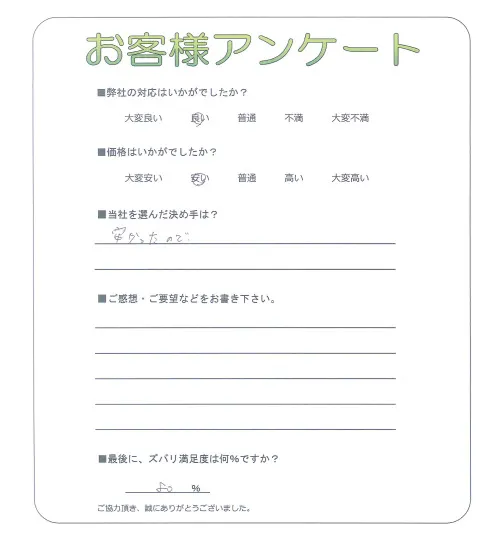 お客様アンケート
■弊社の対応はいかがでしたか？
大変良い 良い 普通 不満 大変不満
■価格はいかがでしたか？
大変安い 安い 普通 高い 大変高い
■当社を選んだ決め手は？
安かったので
■ご感想・ご要望などをお書き下さい。
■最後に、ズバリ満足度は何%ですか？
%
ご協力頂き、誠にありがとうございました。